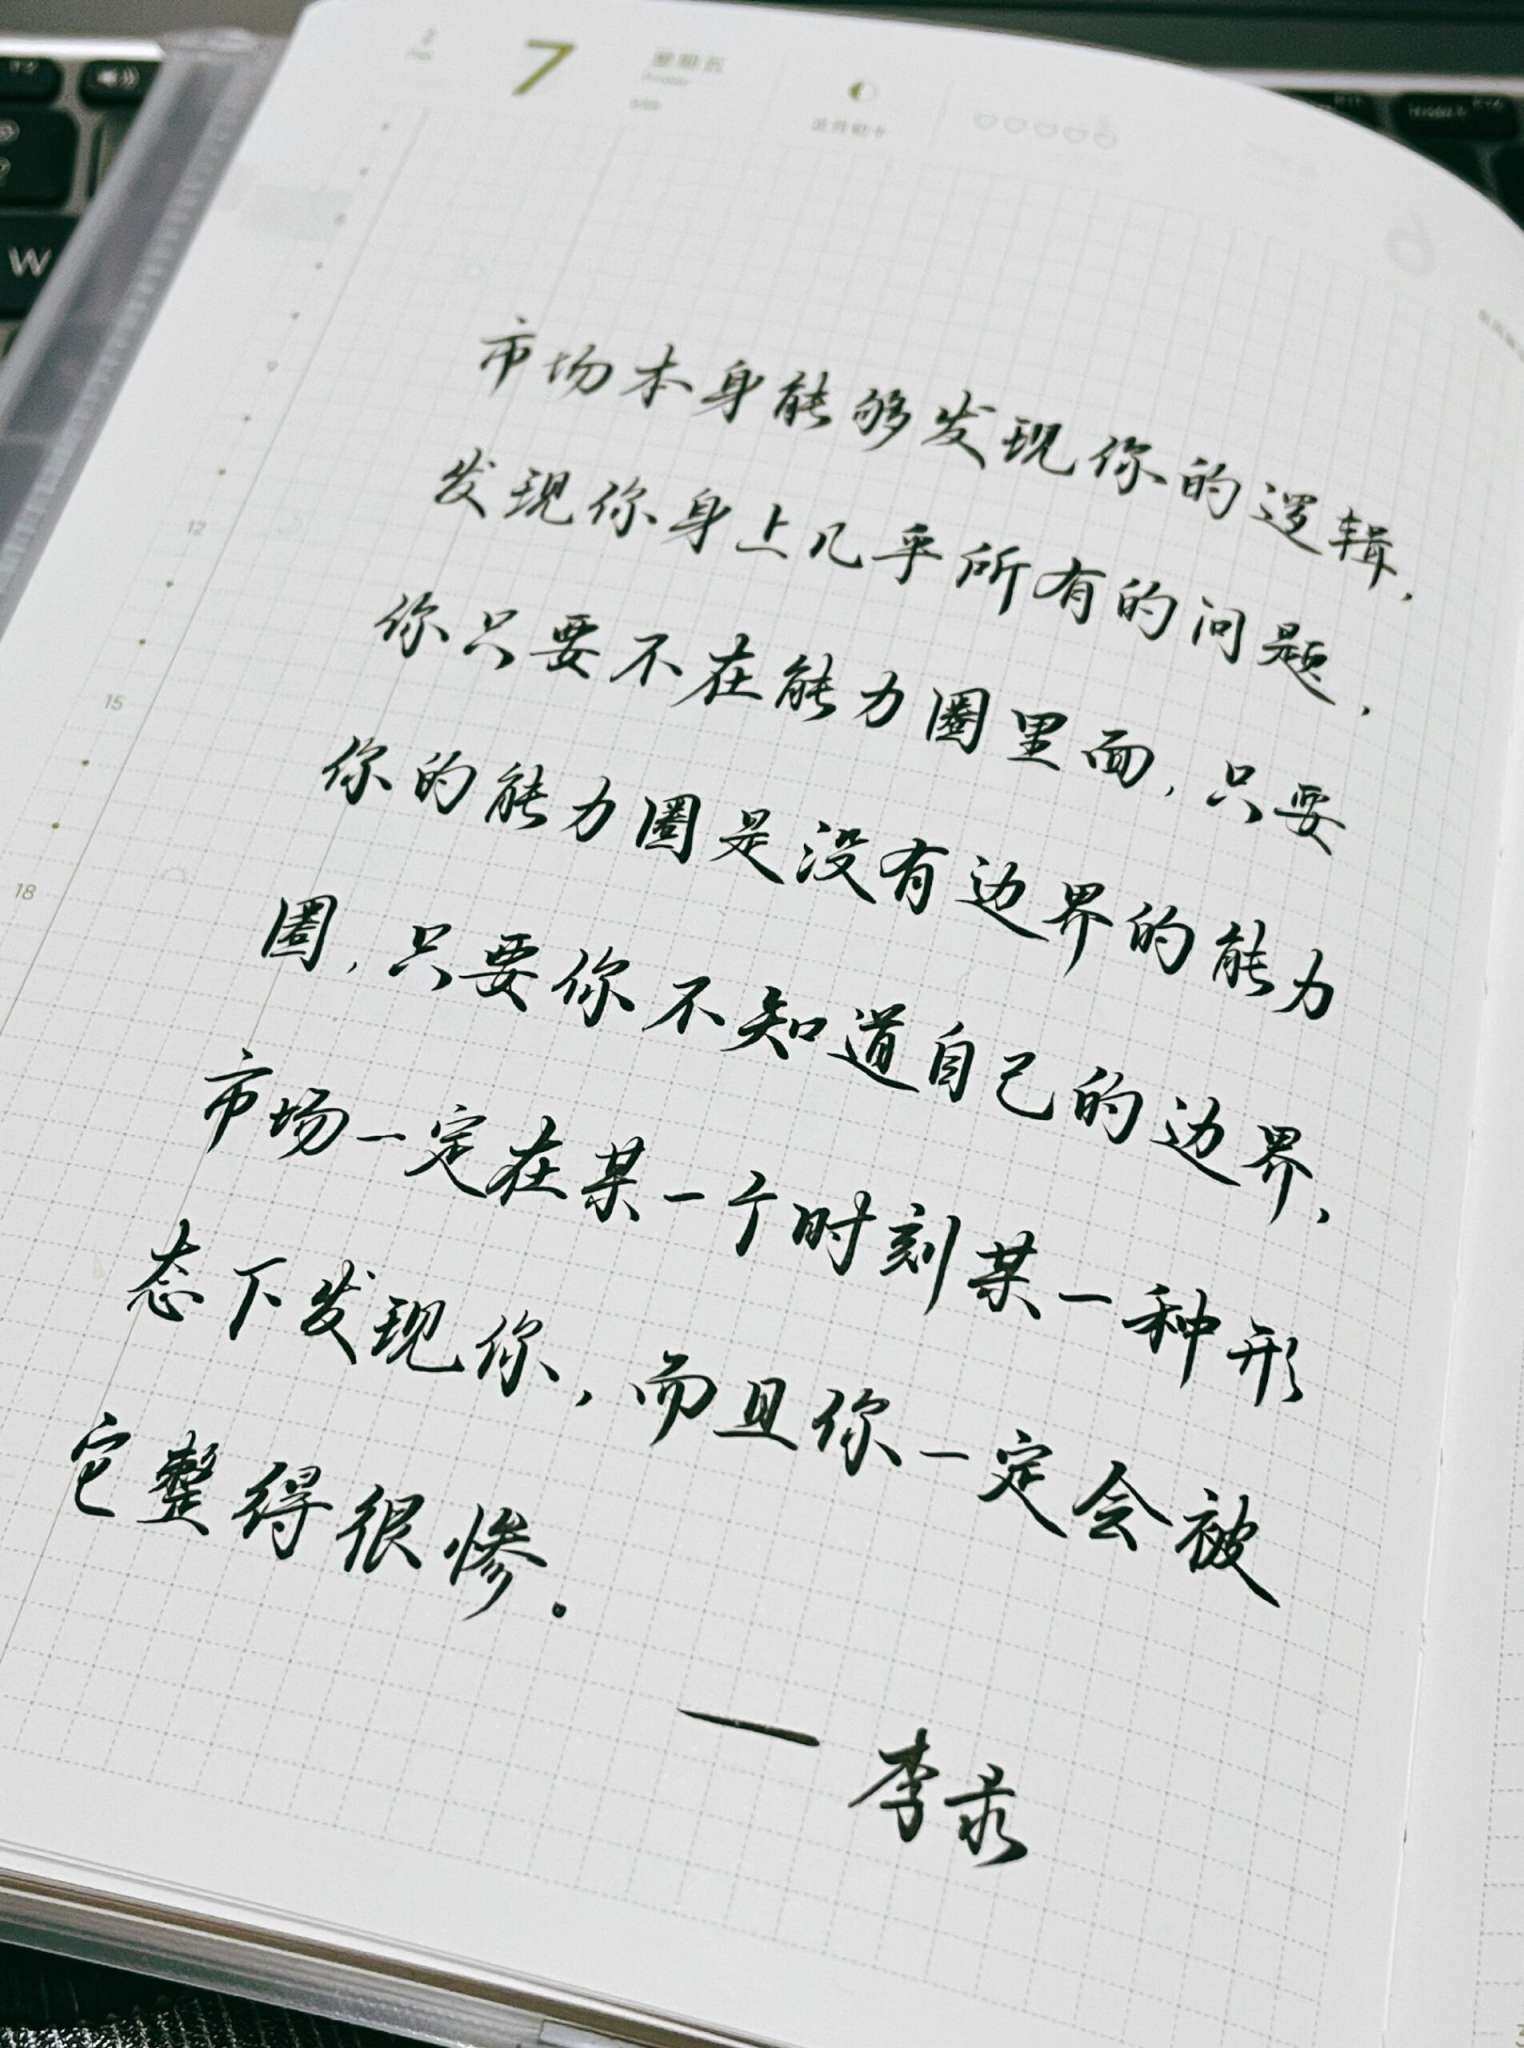 7
市场本身能够发现你的逻辑,
发现你身上几乎所有的问题,
你只要不在能力圈里面,只要
你的能力圈是没有边界的能力
圈,只要你不知道自己的边界,
市场一定在某一个时刻某一种形
态下发现你,而且你一定会被
它整得很惨.
— 李录
12
15
18
W
6